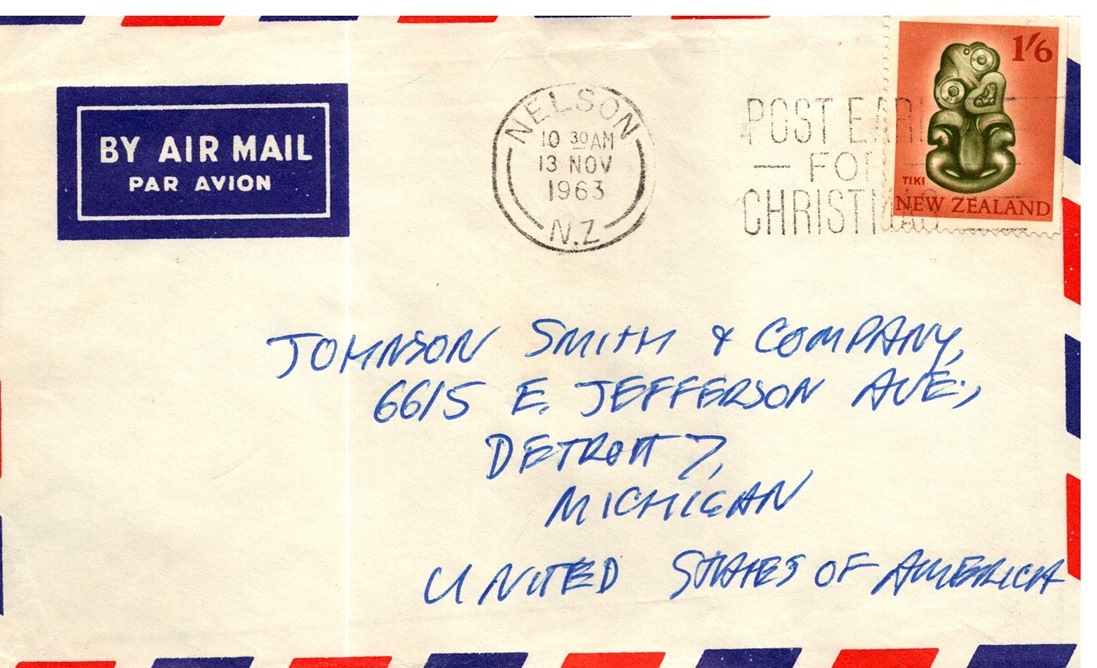 BY AIR MAIL
PAR AVION
NELSON
10 30 AM
13 NOV
1963
N.Z
POST EARL
— FOR
CHRISTMAS
1'6
TIKI
NEW ZEALAND
JOHNSON SMITH & COMPANY,
6615 E. JEFFERSON AVE.,
DETROIT 7,
MICHIGAN
UNITED STATES OF AMERICA